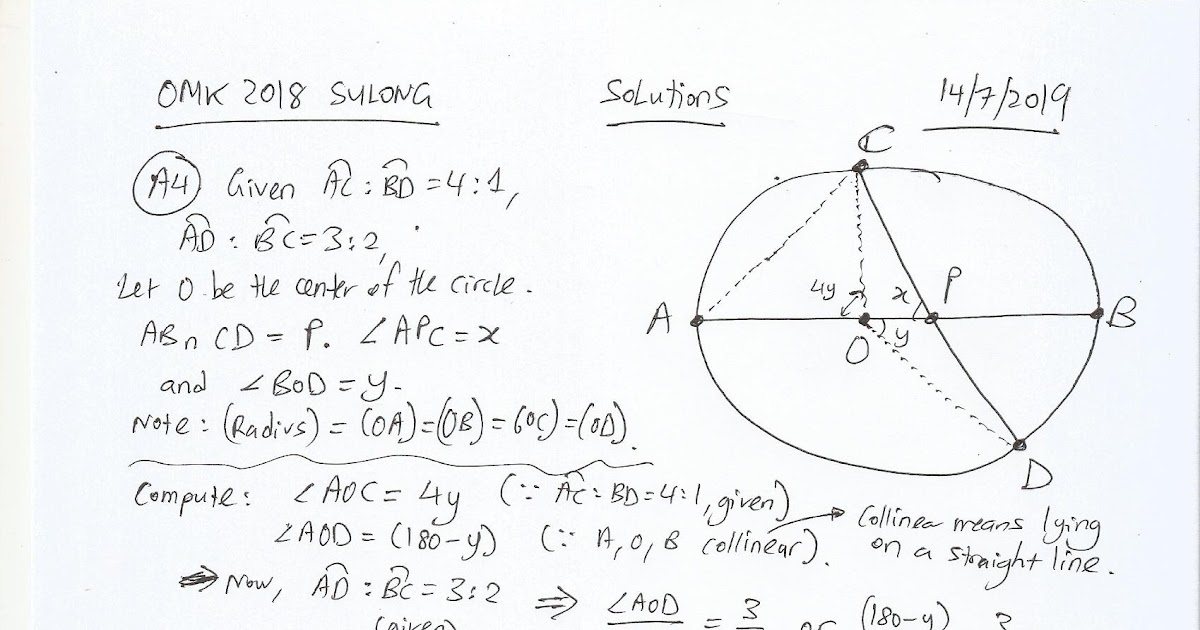 OMK 2018 SULONG Solutions 14/7/2019
A4 Given AC : BD = 4 : 1,
AD : BC = 3 : 2,
Let O be the center of the circle.
AB ∩ CD = P. ∠APC = x
and ∠BOD = y.
Note: (Radius) = (OA) = (OB) = (OC) = (OD).
C
4y x P
A B
O y
D
Compute: ∠AOC = 4y (∵ AC : BD = 4 : 1, given)
∠AOD = (180 - y) (∵ A, O, B collinear).
Collinear means lying
on a straight line.
⇒ Now, AD : BC = 3 : 2 ⇒ ∠AOD = 3 or (180 - y) 3
(given)